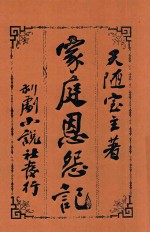 天隨室主著
家庭恩怨記
新劇小說社發行